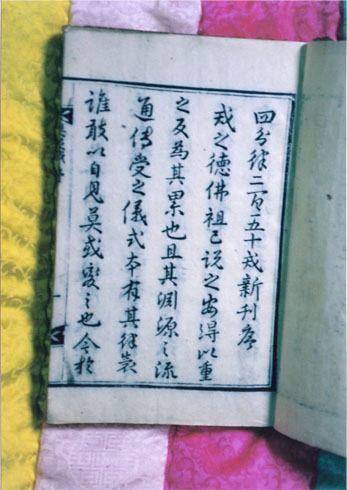 四分律二百五十戒新刊序
戒之德佛祖已說之安得以重
之及為其累也且其淵源之流
通傳受之儀式本有其律
誰敢以自見莫或變之也今於